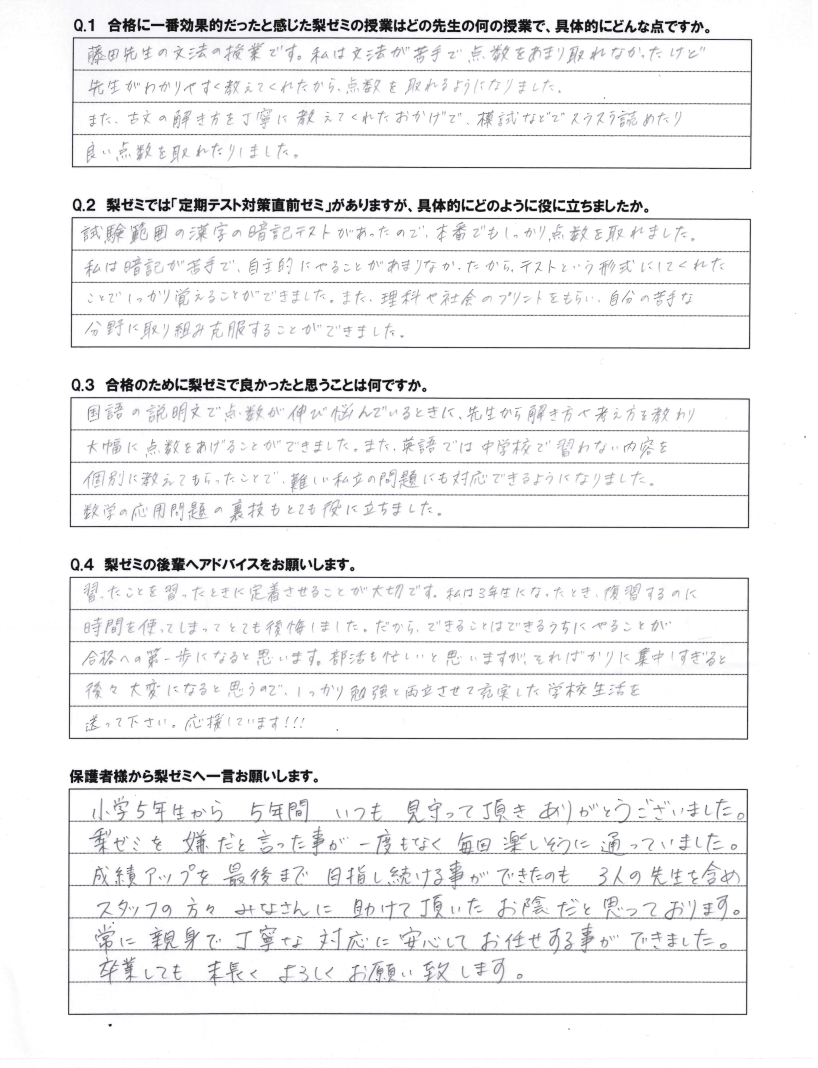 Q.1 合格に一番効果的だったと感じた梨ゼミの授業はどの先生の何の授業で、具体的にどんな点ですか。
藤田先生の文法の授業です。私は文法が苦手で点数をあまり取れなかったけど
先生がわかりやすく教えてくれたから、点数を取れるようになりました。
また、古文の解き方を丁寧に教えてくれたおかげで、模試などでスラスラ読めたり
良い点数を取れたりしました。
Q.2 梨ゼミでは「定期テスト対策直前ゼミ」がありますが、具体的にどのように役に立ちましたか。
試験範囲の漢字の暗記テストがあったので、本番でもしっかり点数を取れました。
私は暗記が苦手で、自主的にやることがあまりなかったから、テストという形式にしてくれた
ことでしっかり覚えることができました。また、理科や社会のプリントをもらい、自分の苦手な
分野に取り組み克服することができました。
Q.3 合格のために梨ゼミで良かったと思うことは何ですか。
国語の説明文で点数が伸び悩んでいるときに、先生から解き方や考え方を教わり
大幅に点数をあげることができました。また、英語では中学校で習わない内容を
個別に教えてもらったことで、難しい私立の問題にも対応できるようになりました。
数学の応用問題の裏技もとても役に立ちました。
Q.4 梨ゼミの後輩へアドバイスをお願いします。
習ったことを習ったときに定着させることが大切です。私は3年生になったとき、復習するのに
時間を使ってしまってとても後悔しました。だから、できることはできるうちにやることが
合格への第一歩になると思います。部活も忙しいと思いますが、そればかりに集中しすぎると
後々大変になると思うので、しっかり勉強と両立させて充実した学校生活を
送って下さい。応援しています!!!
保護者様から梨ゼミへ一言お願いします。
小学5年生から 5年間 いつも 見守って頂き ありがとうございました。
梨ゼミを 嫌だと言った事が 一度もなく 毎回 楽しそうに 通っていました。
成績アップを 最後まで 目指し続ける事ができたのも 3人の先生を含め
スタッフの方々 みなさんに 助けて頂いた お陰だと思っております。
常に 親身で丁寧な 対応に 安心して お任せする事が できました。
卒業しても 末長く よろしくお願い致します。